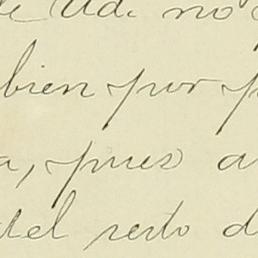 de Ud. no
bien por p
a, pues a
del resto d